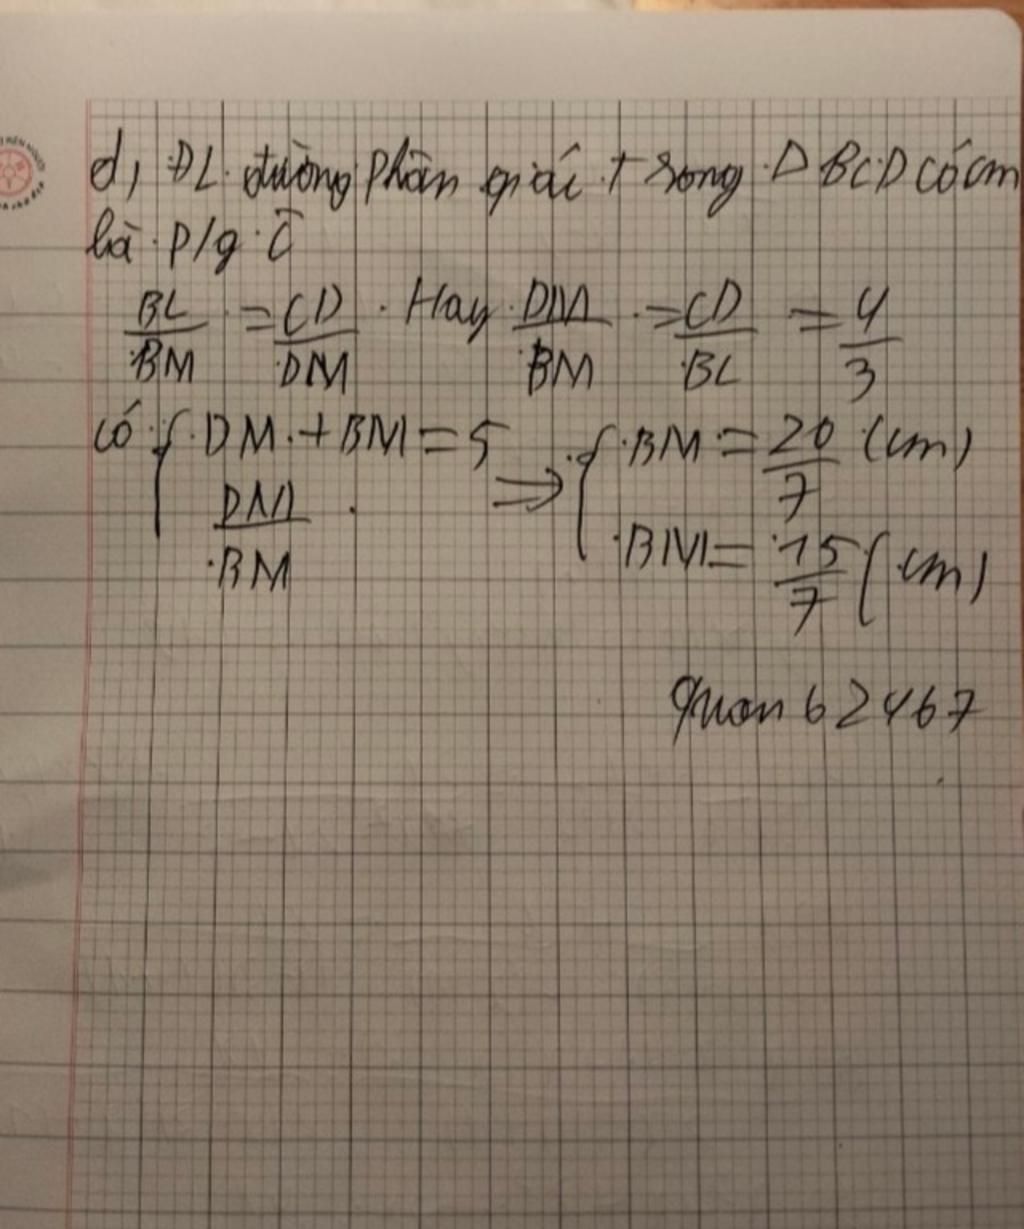 d, ĐL đường phân giác trong Δ BCD có CM
là p/g Ĉ
BC/BM = CD/DM . Hay DM/BM = CD/BC = 4/3
có { DM + BM = 5 ⇒ { BM = 20/7 (cm)
DM/BM BM = 15/7 (cm)
quan62467